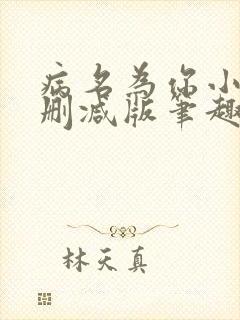 病名为你小
删减版笔趣
林天真